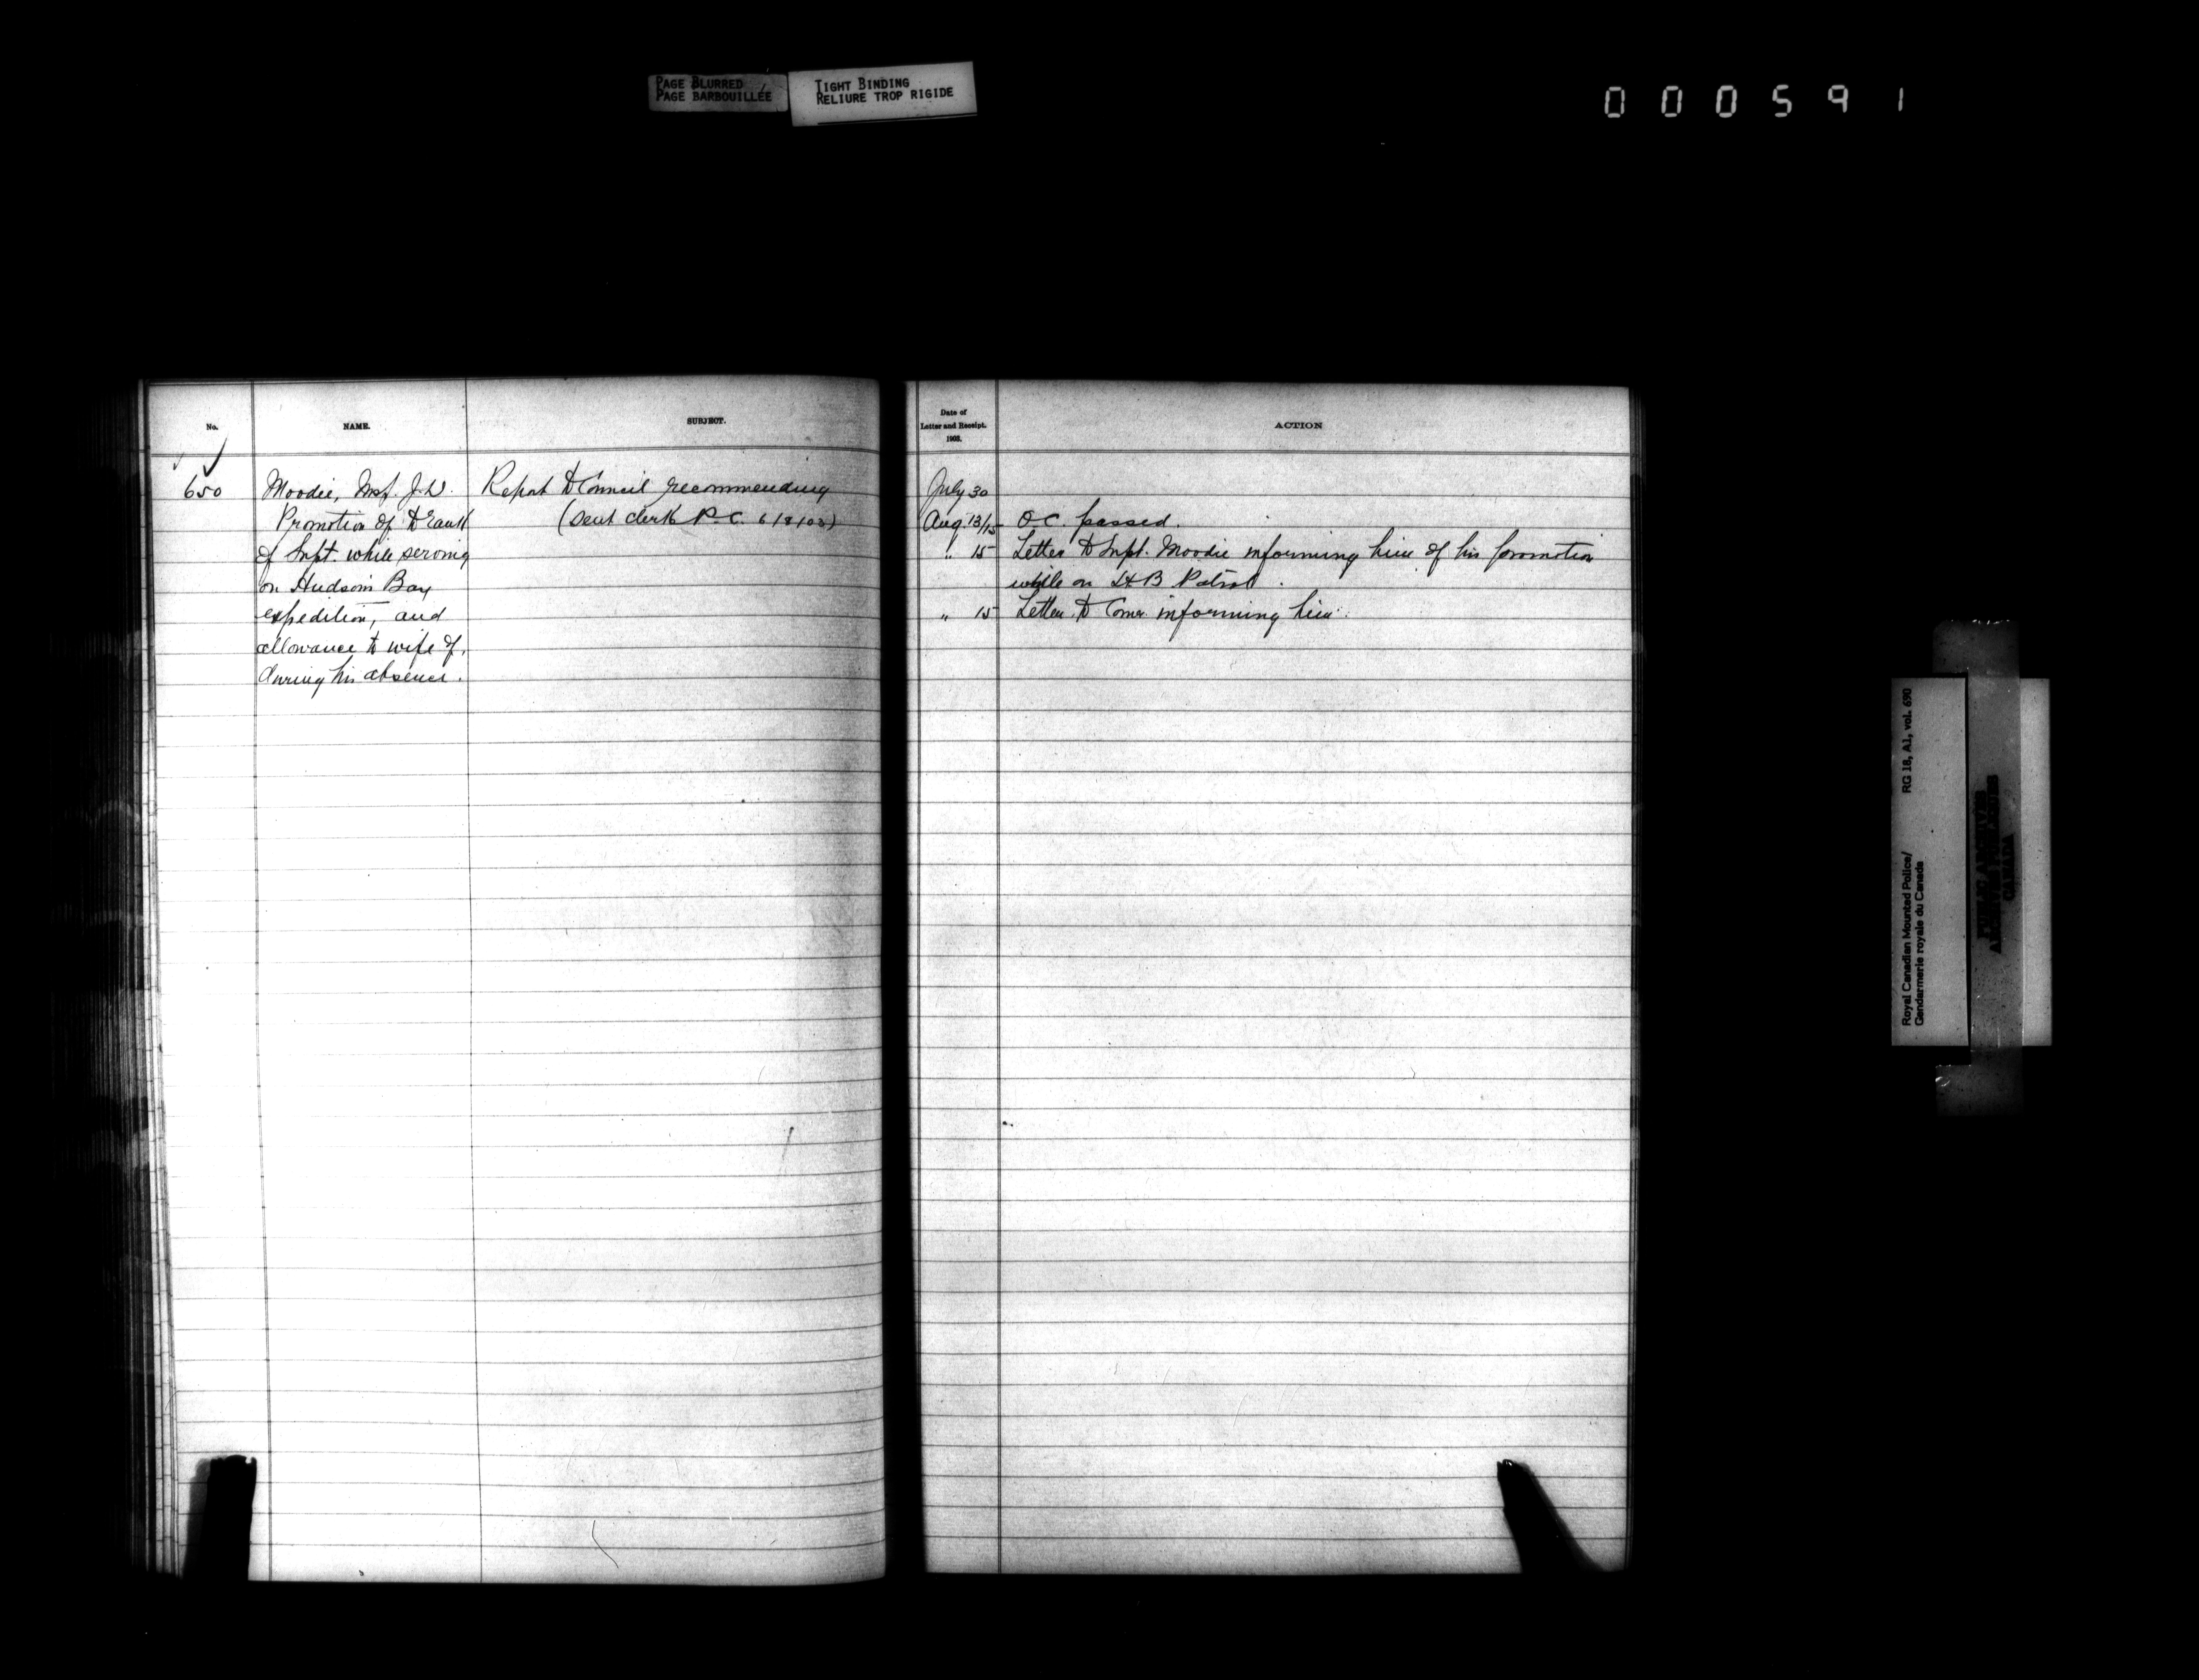 PAGE BLURRED
PAGE BARBOUILLÉE
TIGHT BINDING
RELIURE TROP RIGIDE
000591
No.
NAME.
SUBJECT.
650
Moodie, Insp. J.D.
Promotion of, to rank
of Supt. while serving
on Hudson's Bay
expedition, and
allowance to wife of,
during his absence.
Report to Council recommending
(Sent Clerk P.C. 6/8/03)
Date of
Letter and Receipt.
1903.
ACTION
July 30
Aug 13/15 O.C. passed.
" 15 Letter to Supt. Moodie informing him of his promotion
while on H B Patrol.
" 15 Letter to Comr. informing him.
Royal Canadian Mounted Police/
Gendarmerie royale du Canada
RG 18, A1, vol. 690
PUBLIC ARCHIVES
ARCHIVES PUBLIQUES
CANADA